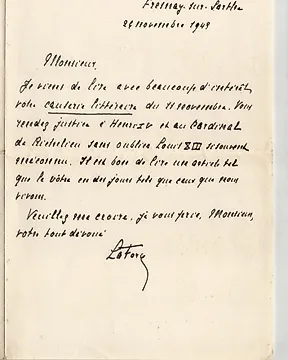 Fresnay-sur-Sarthe
24 novembre 1949
Monsieur,
Je viens de lire avec beaucoup d'intérêt,
votre causerie littéraire du 11 novembre. Vous
rendez justice à Henri IV et au Cardinal
de Richelieu sans oublier Louis XIII si souvent
méconnu. Il est bon de lire un article tel
que le vôtre en des jours tels que ceux que nous
vivons.
Veuillez me croire, je vous prie, Monsieur,
votre tout dévoué
La Force